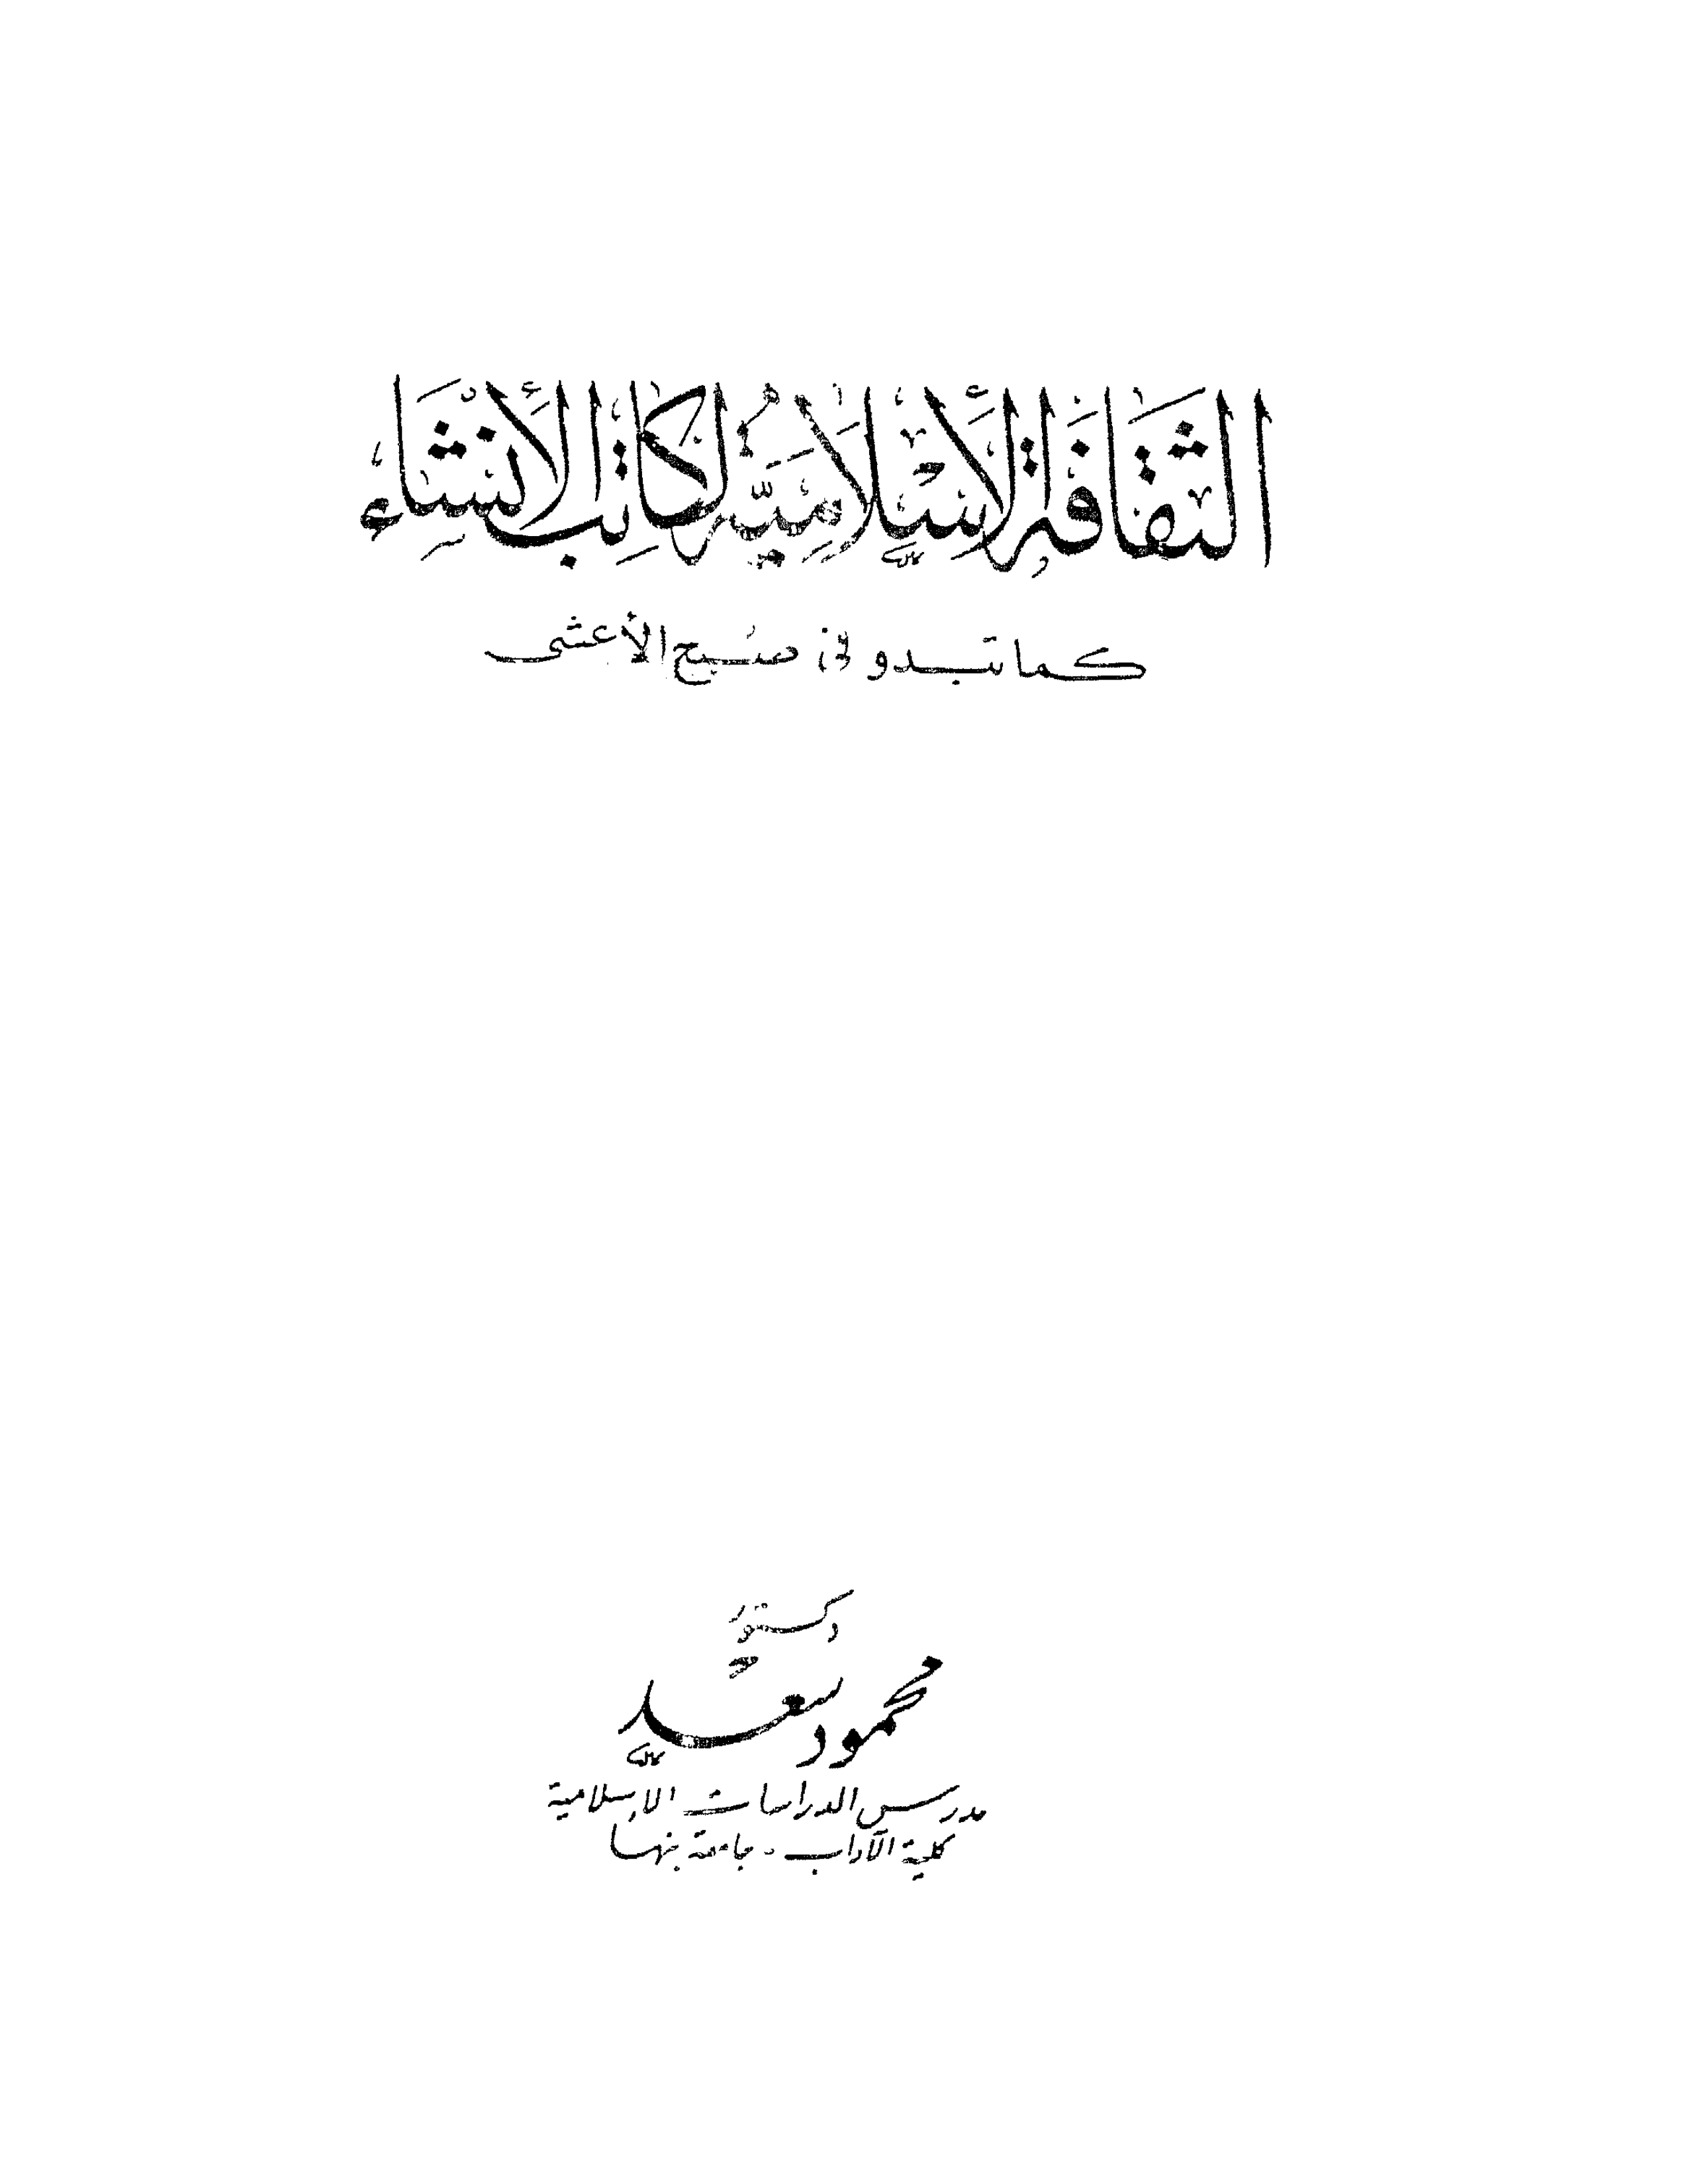 الثقافة الإسلامية لكاتب الإنشاء
كما تبدو في صبح الأعشى
دكتور
محمود سعد
مدرس الدراسات الإسلامية
كلية الآداب - جامعة بنها